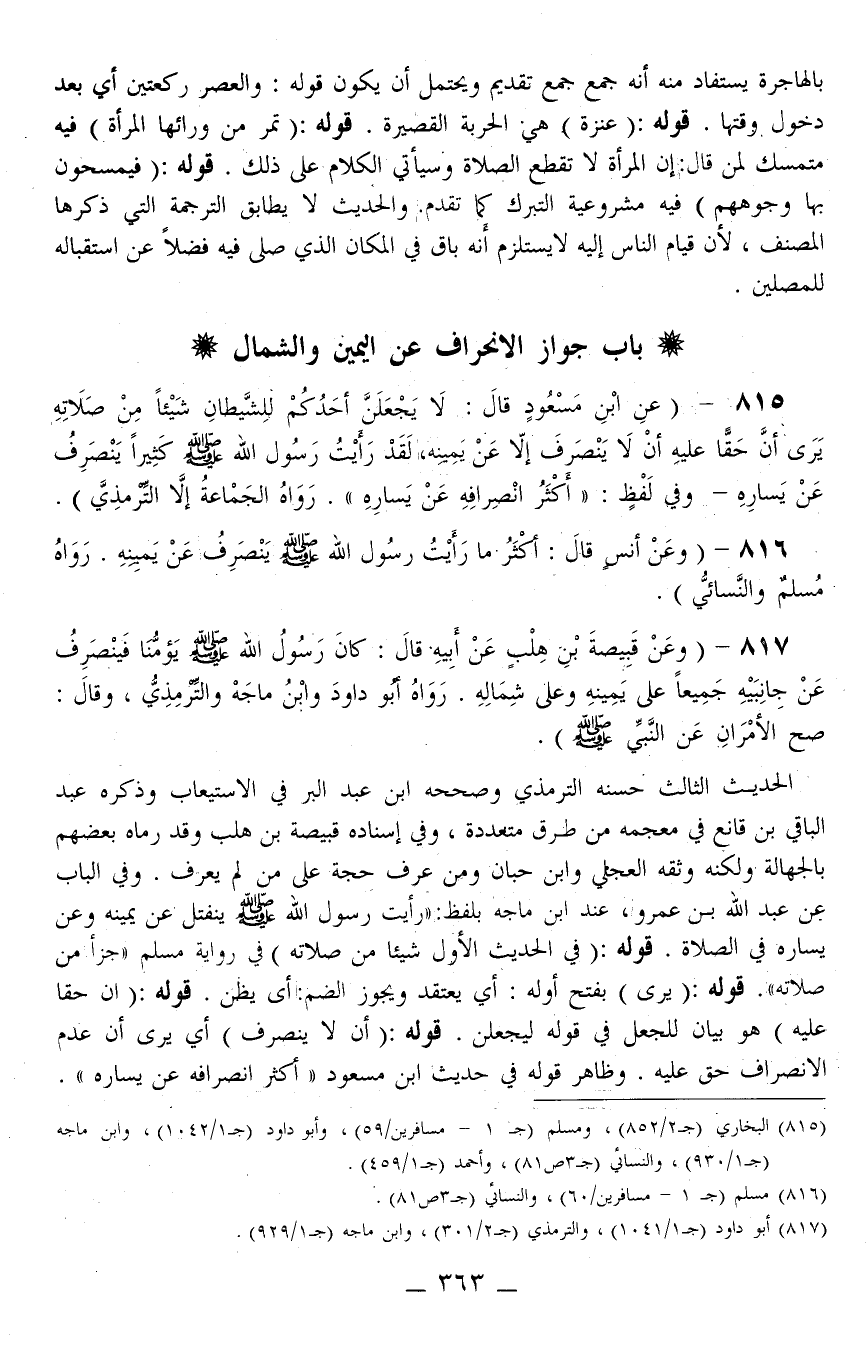 بالهاجرة يستفاد منه أنه جمع جمع تقديم ويحتمل أن يكون قوله : والعصر ركعتين أي بعد
دخول وقتها . قوله :( عنزة ) هي الحربة القصيرة . قوله :( تمر من ورائها المرأة ) فيه
متمسك لمن قال: إن المرأة لا تقطع الصلاة وسيأتي الكلام على ذلك . قوله :( فيمسحون
بها وجوههم ) فيه مشروعية التبرك كما تقدم. والحديث لا يطابق الترجمة التي ذكرها
المصنف ، لأن قيام الناس إليه لايستلزم أنه باق في المكان الذي صلى فيه فضلاً عن استقباله
للمصلين .
باب جواز الانحراف عن اليمين والشمال
٨١٥ - ( عنِ ابْنِ مَسْعُودٍ قالَ : لَا يَجْعَلَنَّ أحَدُكُمْ لِلشَّيطانِ شَيْئاً مِنْ صَلَاتِهِ
يَرَى أنَّ حَقَّا عليهِ أنْ لَا يَنْصَرِفَ إلّا عَنْ يَمِينِه، لَقَدْ رَأَيْتُ رَسُول الله ﷺ كَثِيراً يَنْصَرِفُ
عَنْ يَسارِهِ - وفي لَفْظٍ : « أَكْثَرُ انْصِرافِهِ عَنْ يَسارِهِ » . رَوَاهُ الجَمْاعةُ إلَّا التِّرْمذِيَّ ) .
٨١٦ - ( وعَنْ أنسٍ قالَ : أكْثَرُ ما رَأَيْتُ رسُول الله ﷺ يَنْصَرِفُ عَنْ يَمِينِهِ . رَوَاهُ
مُسلمٌ والنَّسائيُّ ) .
٨١٧ - ( وعَنْ قَبِيصةَ بْنِ هِلْبٍ عَنْ أَبِيهِ قالَ : كانَ رَسُولُ الله ﷺ يَؤمُّنَا فَيَنْصَرِفُ
عَنْ جانِبَيْهِ جَمِيعاً على يَمِينهِ وعلى شِمَالِهِ . رَوَاهُ أبُو داودَ وابْنُ ماجَهْ والتِّرْمِذِيُّ ، وقالَ :
صح الأمْرَانِ عَن النَّبيِّ ﷺ ) .
الحديث الثالث حسنه الترمذي وصححه ابن عبد البر في الاستيعاب وذكره عبد
الباقي بن قانع في معجمه من طرق متعددة ، وفي إسناده قبيصة بن هلب وقد رماه بعضهم
بالجهالة ولكنه وثقه العجلي وابن حبان ومن عرف حجة على من لم يعرف . وفي الباب
عن عبد الله بن عمرو، عند ابن ماجه بلفظ: «رأيت رسول الله ﷺ ينفتل عن يمينه وعن
يساره في الصلاة . قوله :( في الحديث الأول شيئا من صلاته ) في رواية مسلم «جزأ من
صلاته». قوله :( يرى ) بفتح أوله : أي يعتقد ويجوز الضم: أى يظن . قوله :( ان حقا
عليه ) هو بيان للجعل في قوله ليجعلن . قوله :( أن لا ينصرف ) أي يرى أن عدم
الانصراف حق عليه . وظاهر قوله في حديث ابن مسعود « أكثر انصرافه عن يساره » .
(٨١٥) البخاري (جـ٨٥٢/٢) ، ومسلم (جـ ١ - مسافرين/٥٩) ، وأبو داود (جـ١٠٤٢/١) ، وابن ماجه
(جـ٩٣٠/١) ، والنسائي (جـ٣ص٨١) ، وأحمد (جـ٤٥٩/١) .
(٨١٦) مسلم (جـ ١ - مسافرين/٦٠) ، والنسائي (جـ٣ص٨١) .
(٨١٧) أبو داود (جـ١٠٤١/١) ، والترمذي (جـ٣٠١/٢) ، وابن ماجه (جـ٩٢٩/١) .
_ ٣٦٣ _